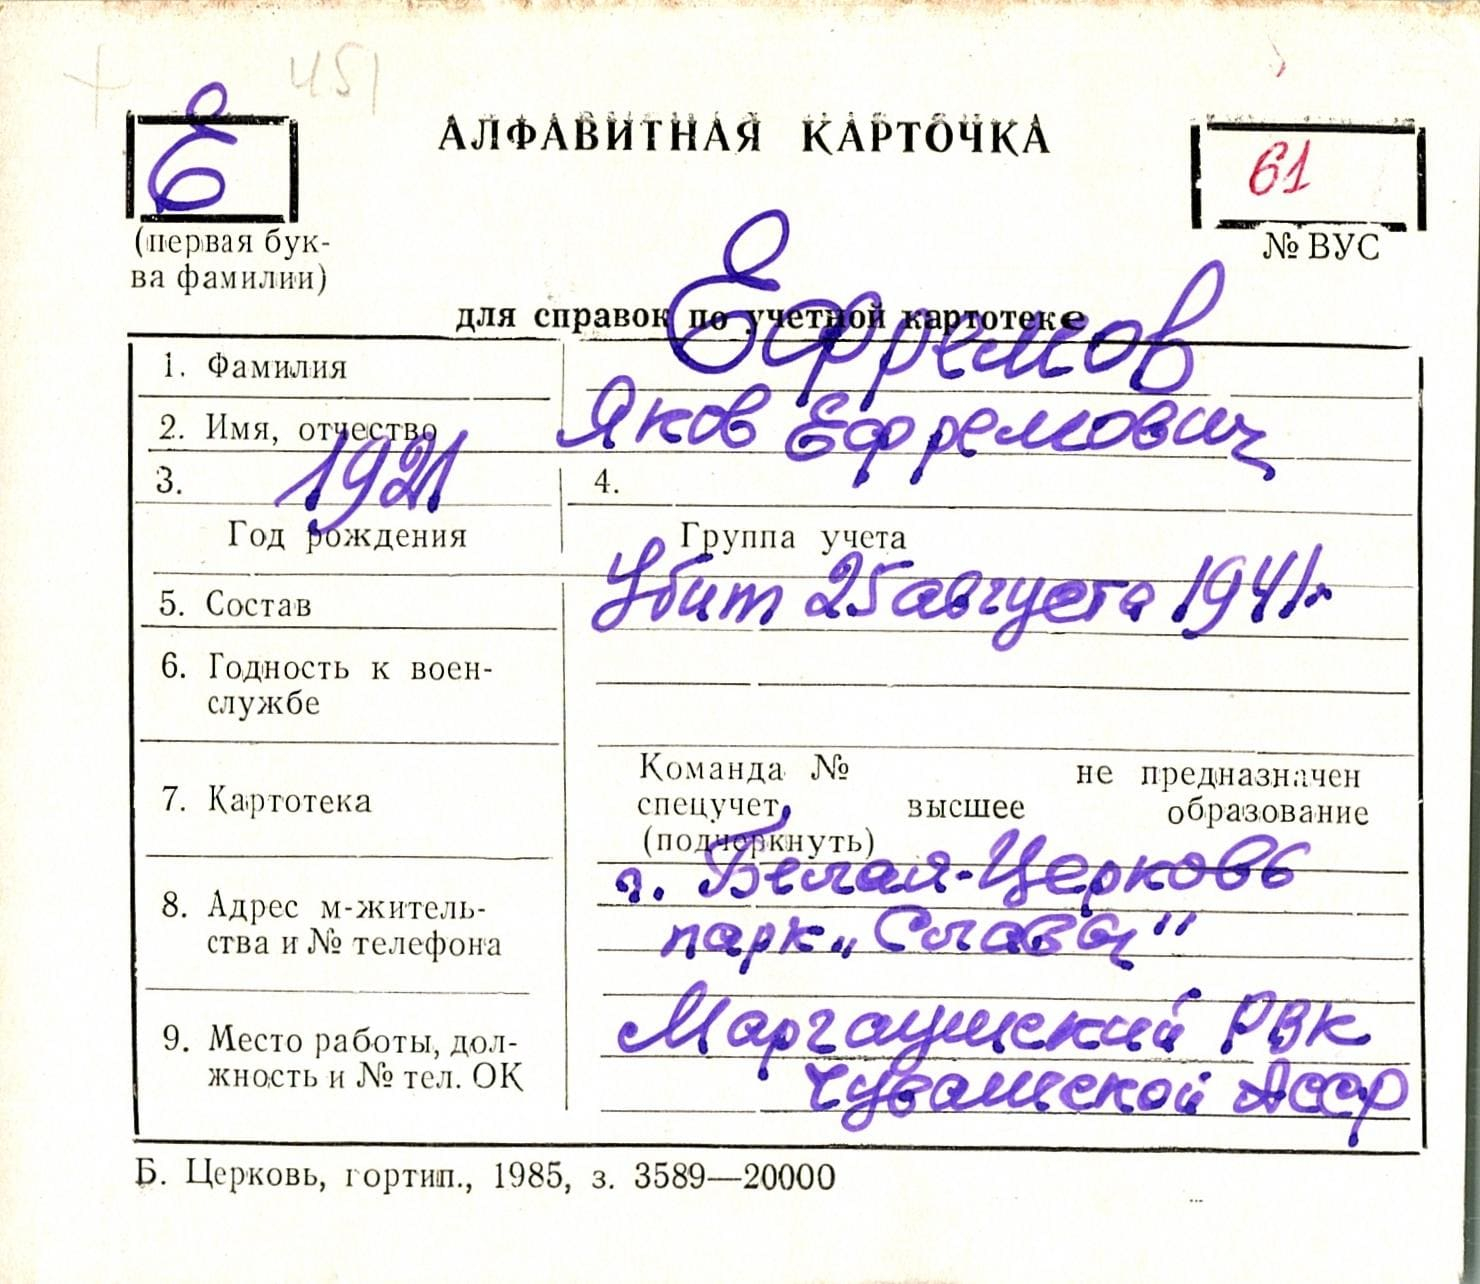 451
Е
АЛФАВИТНАЯ КАРТОЧКА
61
(первая бук-
ва фамилии)
№ ВУС
для справок по учетной картотеке
1. Фамилия
Ефремов
2. Имя, отчество
Яков Ефремович
3. 1921
4.
Год рождения
Группа учета
5. Состав
Убит 25 августа 1941г
6. Годность к воен-
службе
7. Картотека
Команда № не предназначен
спецучет, высшее образование
(подчеркнуть)
8. Адрес м-житель-
ства и № телефона
г. Белая-Церковь
парк „Славы"
9. Место работы, дол-
жность и № тел. ОК
Маргаушский РВК
Чувашской АССР
Б. Церковь, гортип., 1985, з. 3589—20000